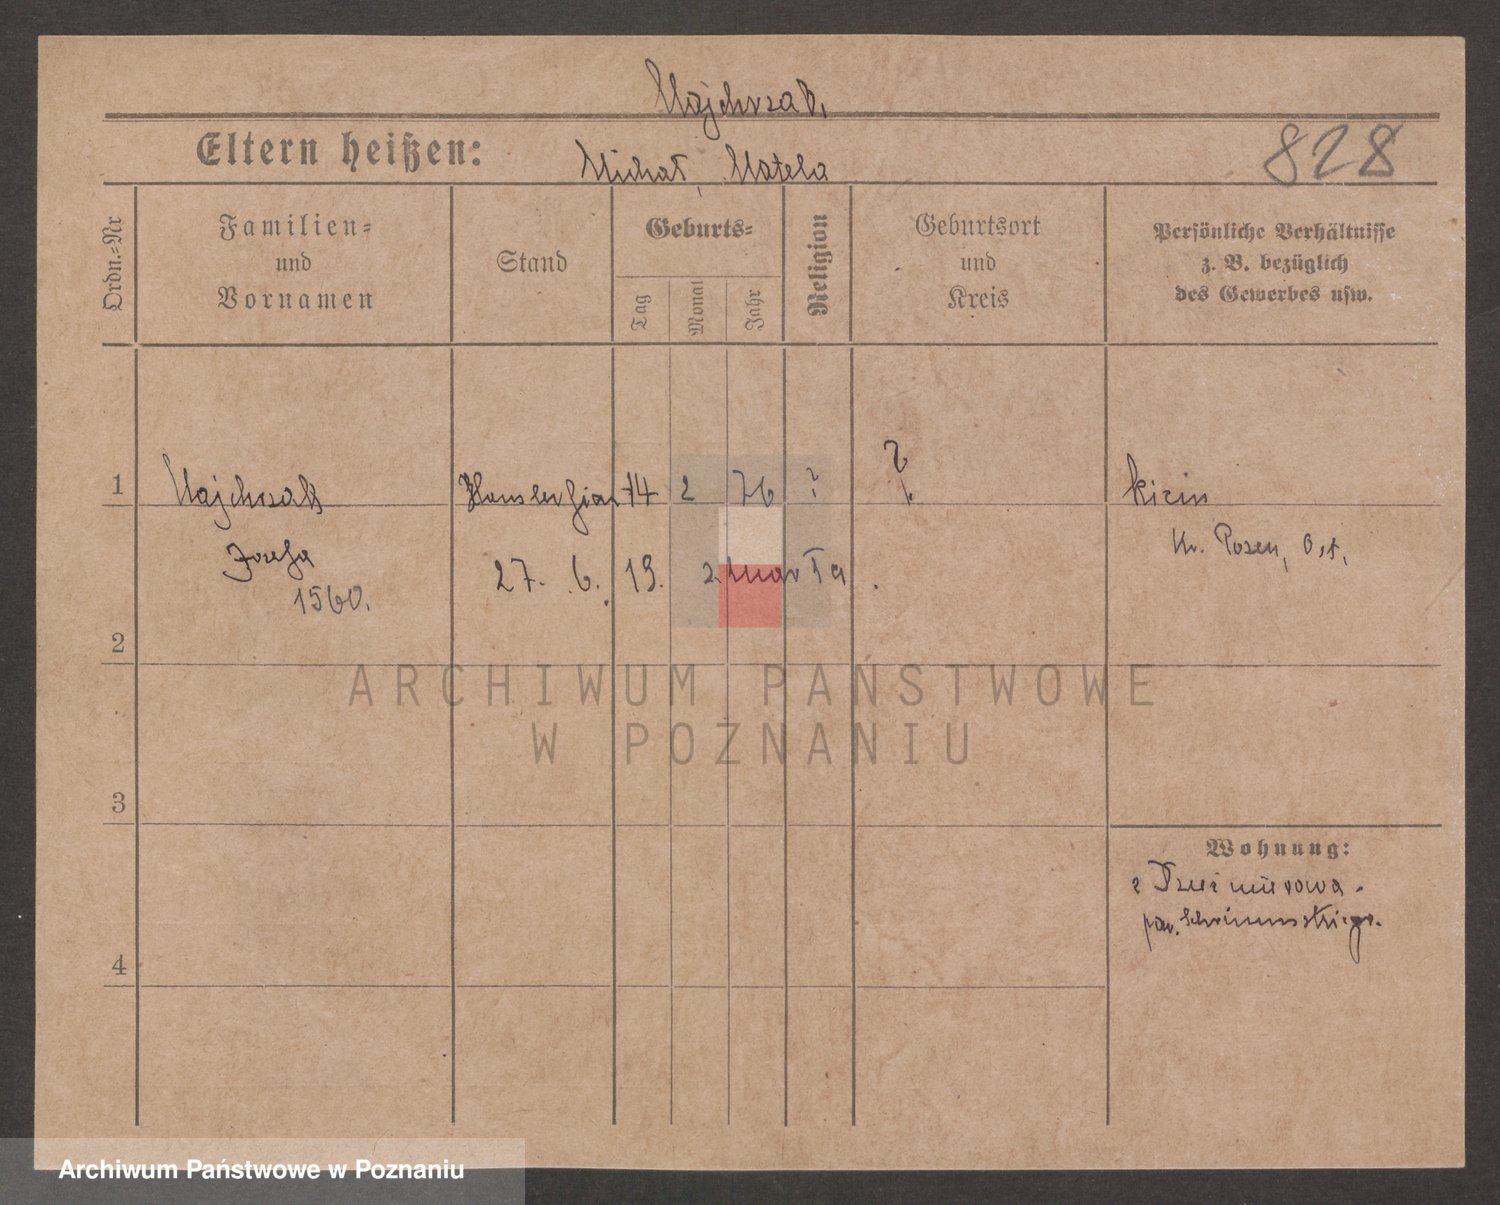 Majchrzak,
Eltern heißen:
Michał, Matela
828
Ordn.-Nr
Familien-
und
Vornamen
Stand
Geburts-
Tag
Monat
Jahr
Religion
Geburtsort
und
Kreis
Persönliche Verhältnisse
z. B. bezüglich
des Gewerbes usw.
1 Majchrzak 14 2 76 ? ? Kicin
Józefa 27. 6. 19. zmarła. Kr. Posen, Ost,
1560.
2
ARCHIWUM PAŃSTWOWE
W POZNANIU
3
Wohnung:
pow. Schrimmskiego.
4
Archiwum Państwowe w Poznaniu